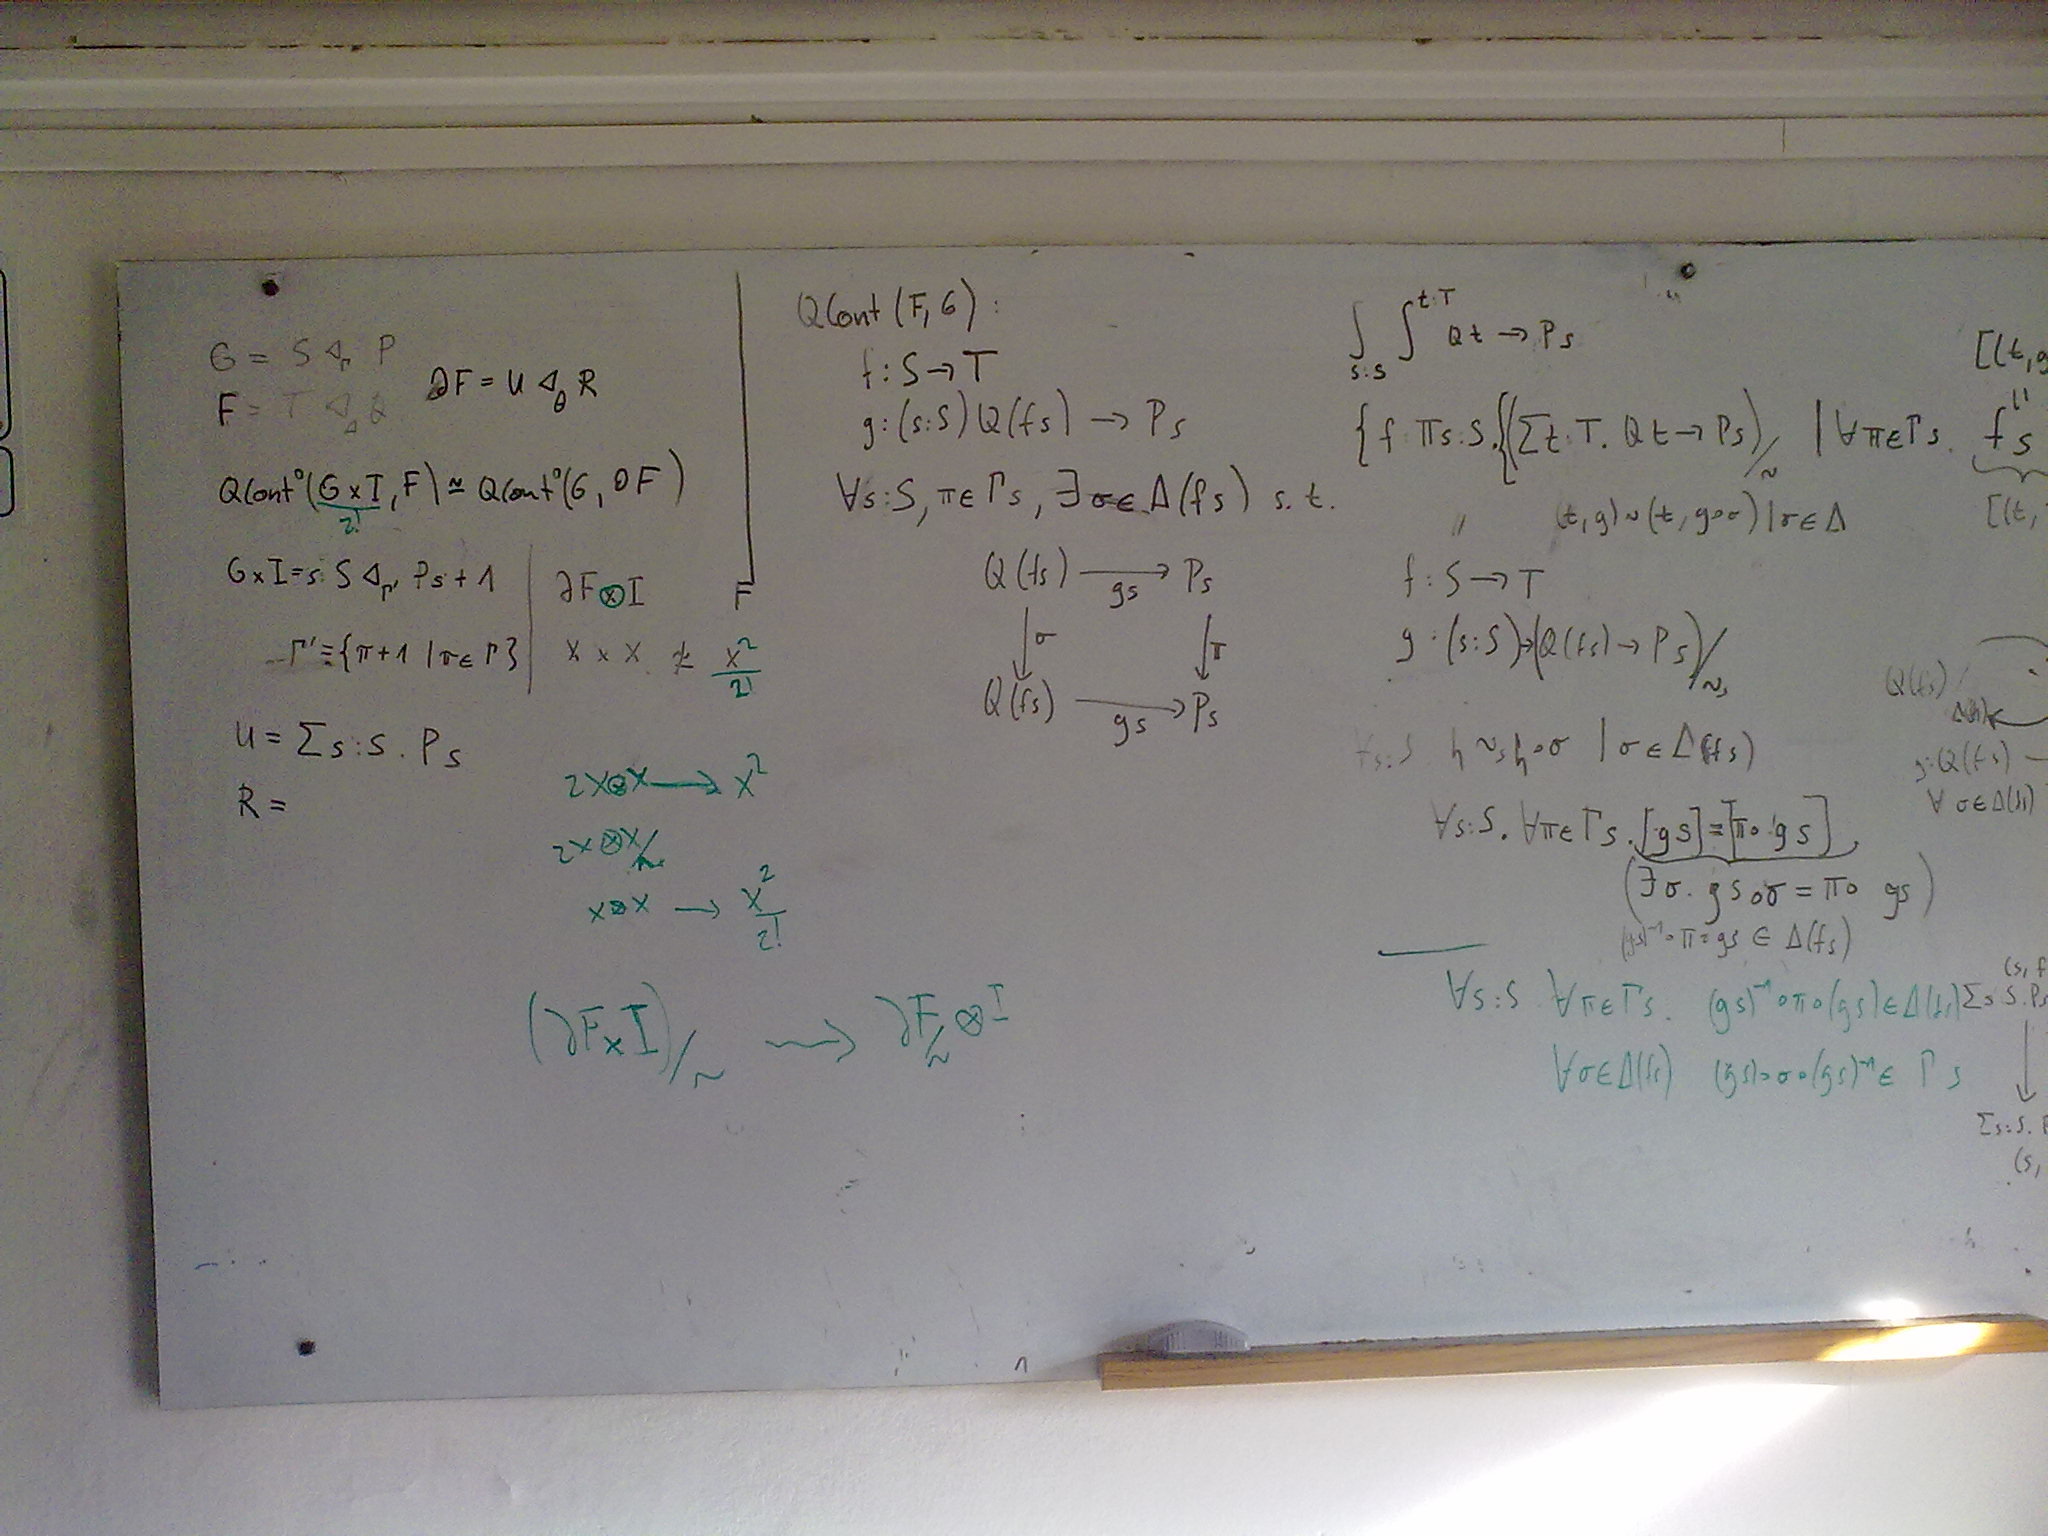 G = S ◁_Γ P
F = T ◁_Δ Q
∂F = U ◁_θ R
QCont°(G × I, F) ≃ QCont°(G, ∂F)
2!
G×I = s:S ◁_Γ' Ps + 1
Γ' = {π+1 | π∈Γ}
∂F ⊗ I
F
X × X ≄ X²/2!
U = Σs:S. Ps
R =
2X⊗X → X²
2X⊗X/~
X⊗X → X²/2!
(∂F × I)/~ ⇝ ∂F/~ ⊗ I
QCont (F, G) :
f : S → T
g : (s:S) Q(fs) → Ps
∀s:S, π∈Γs, ∃σ∈Δ(fs) s.t.
Q(fs) → Ps
gs
σ π
Q(fs) → Ps
gs
∫_{s:S} ∫^{t:T} Qt → Ps
{f : Πs:S.{(Σt:T. Qt → Ps)/~ | ∀π∈Γs. fs
[(t,g
"
[(t,
" (t,g) ~ (t, g∘σ) | σ∈Δ
f : S → T
g : (s:S) → (Q(fs) → Ps)/~s
∀s:S h ~s h∘σ | σ∈Δ(fs)
∀s:S. ∀π∈Γs. [gs] = [π∘gs]
(∃σ. gs∘σ = π∘ gs)
(gs)⁻¹∘π∘gs ∈ Δ(fs)
∀s:S ∀π∈Γs. (gs)⁻¹∘π∘(gs)∈Δ(fs)
∀σ∈Δ(fs) (gs)∘σ∘(gs)⁻¹∈ Γs
Q(fs)
Δ(fs)
g:Q(fs)
∀ σ∈Δ(fs)
(s, f
Σs:S.Ps
↓
Σs:S. P
(s,